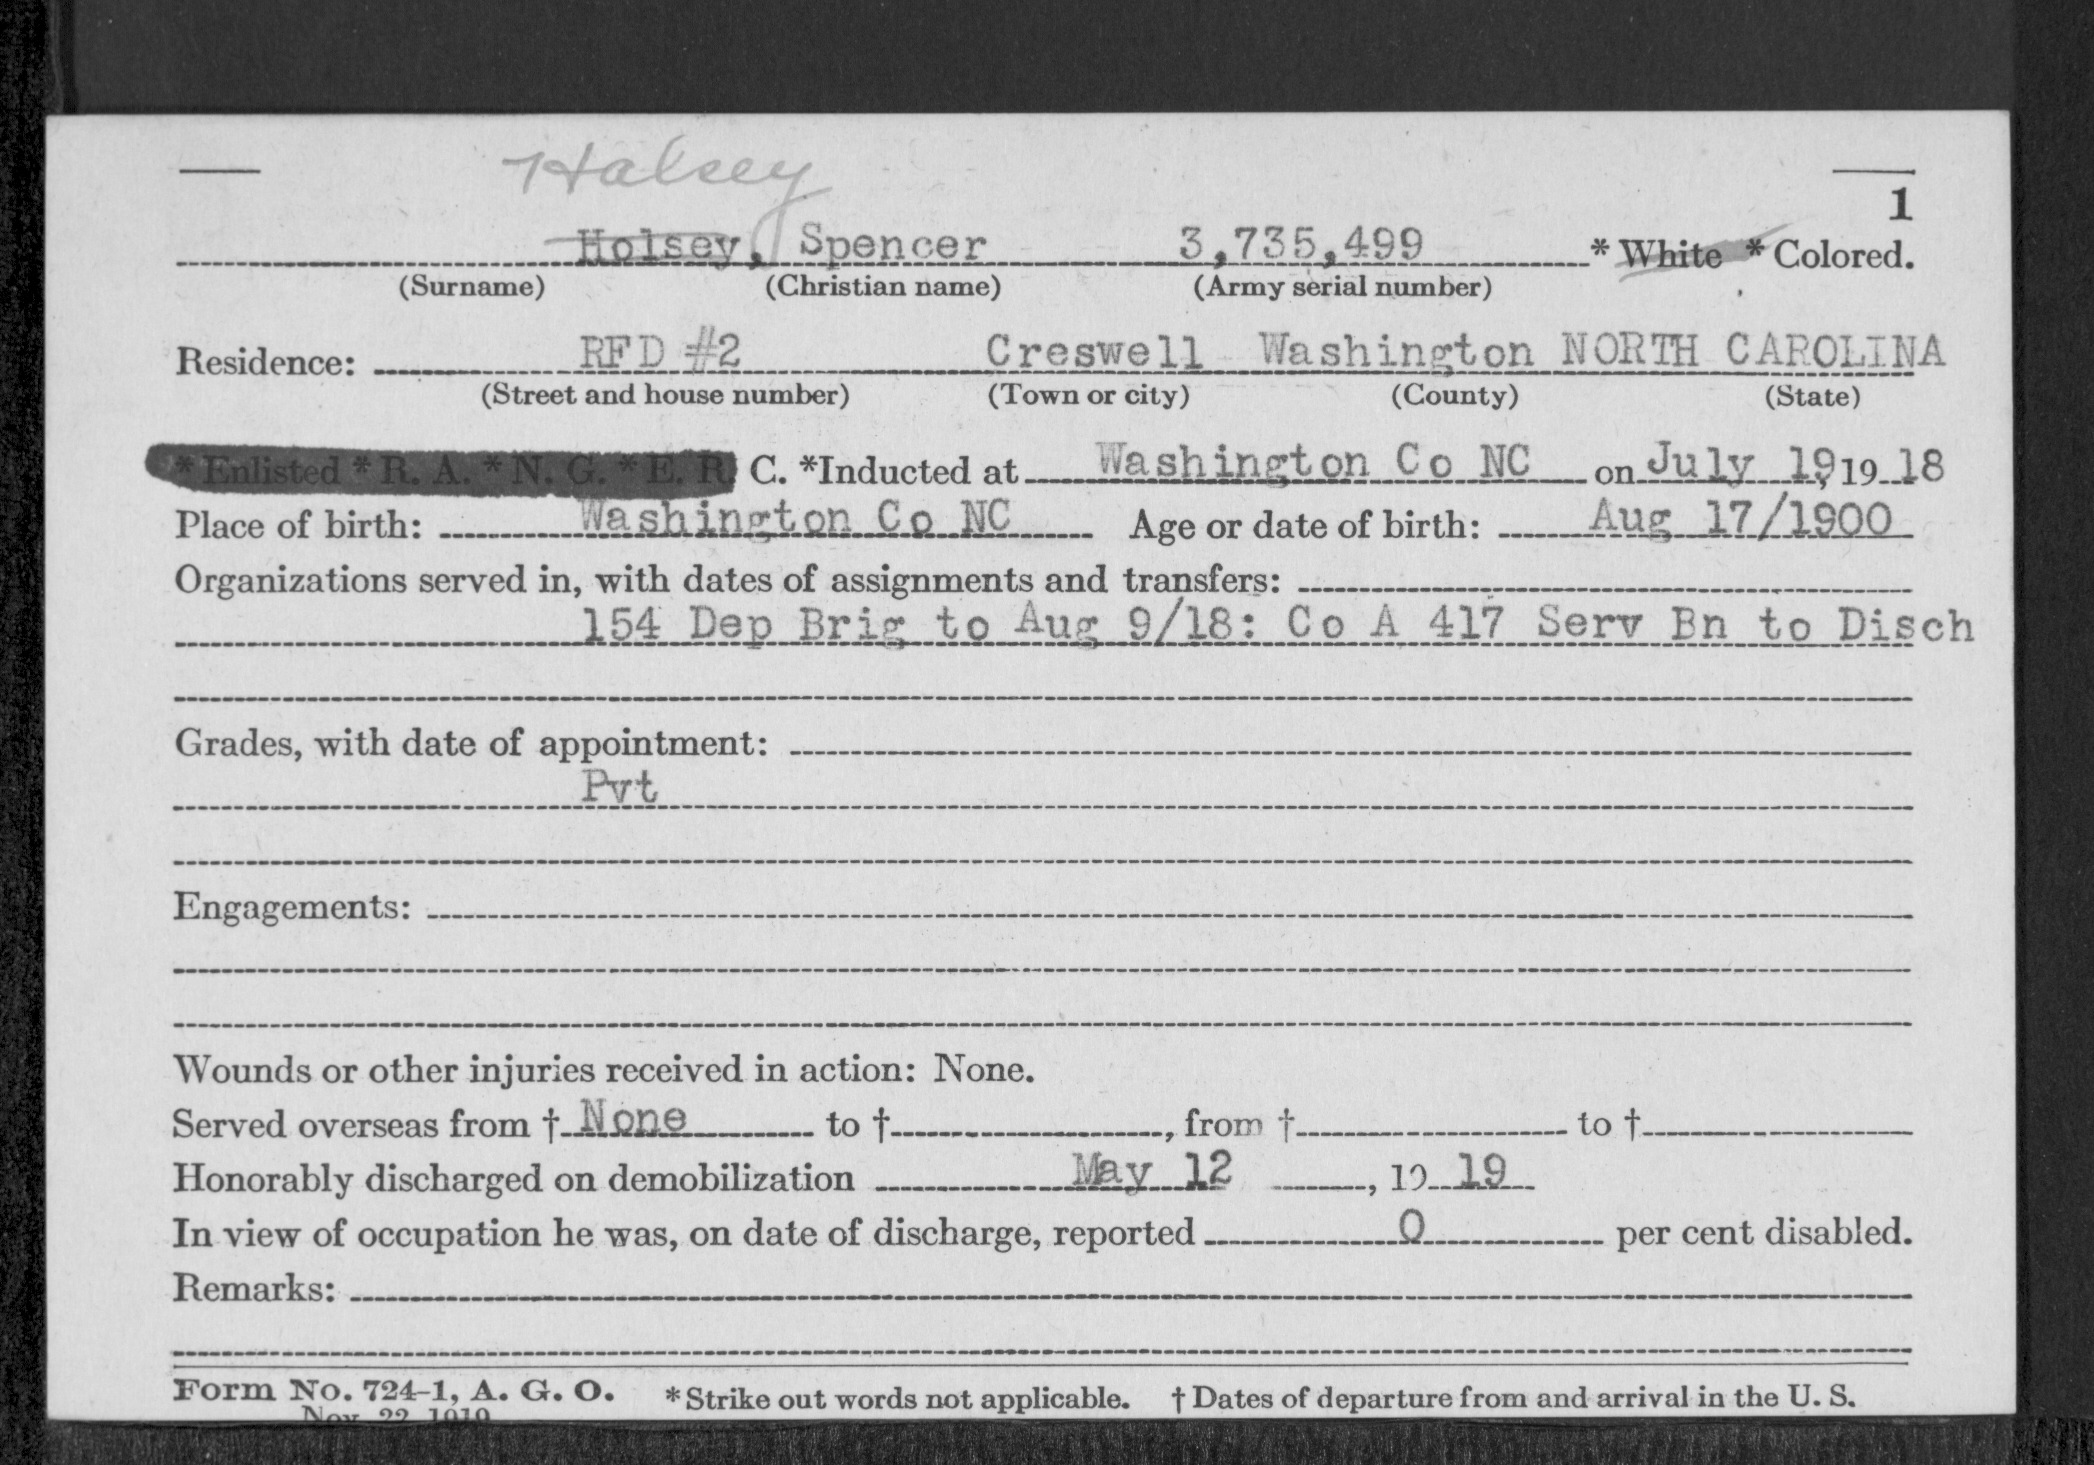 Halsey
1
Holsey, Spencer 3,735,499 * White * Colored.
(Surname) (Christian name) (Army serial number)
Residence: RFD #2 Creswell Washington NORTH CAROLINA
(Street and house number) (Town or city) (County) (State)
* Enlisted * R. A. * N. G. * E. R. C. *Inducted at Washington Co NC on July 19, 19 18
Place of birth: Washington Co NC Age or date of birth: Aug 17/1900
Organizations served in, with dates of assignments and transfers:
154 Dep Brig to Aug 9/18: Co A 417 Serv Bn to Disch
Grades, with date of appointment:
Pvt
Engagements:
Wounds or other injuries received in action: None.
Served overseas from † None to †, from † to †
Honorably discharged on demobilization May 12, 19 19
In view of occupation he was, on date of discharge, reported 0 per cent disabled.
Remarks:
Form No. 724-1, A. G. O. * Strike out words not applicable. † Dates of departure from and arrival in the U. S.
Nov. 22, 1919